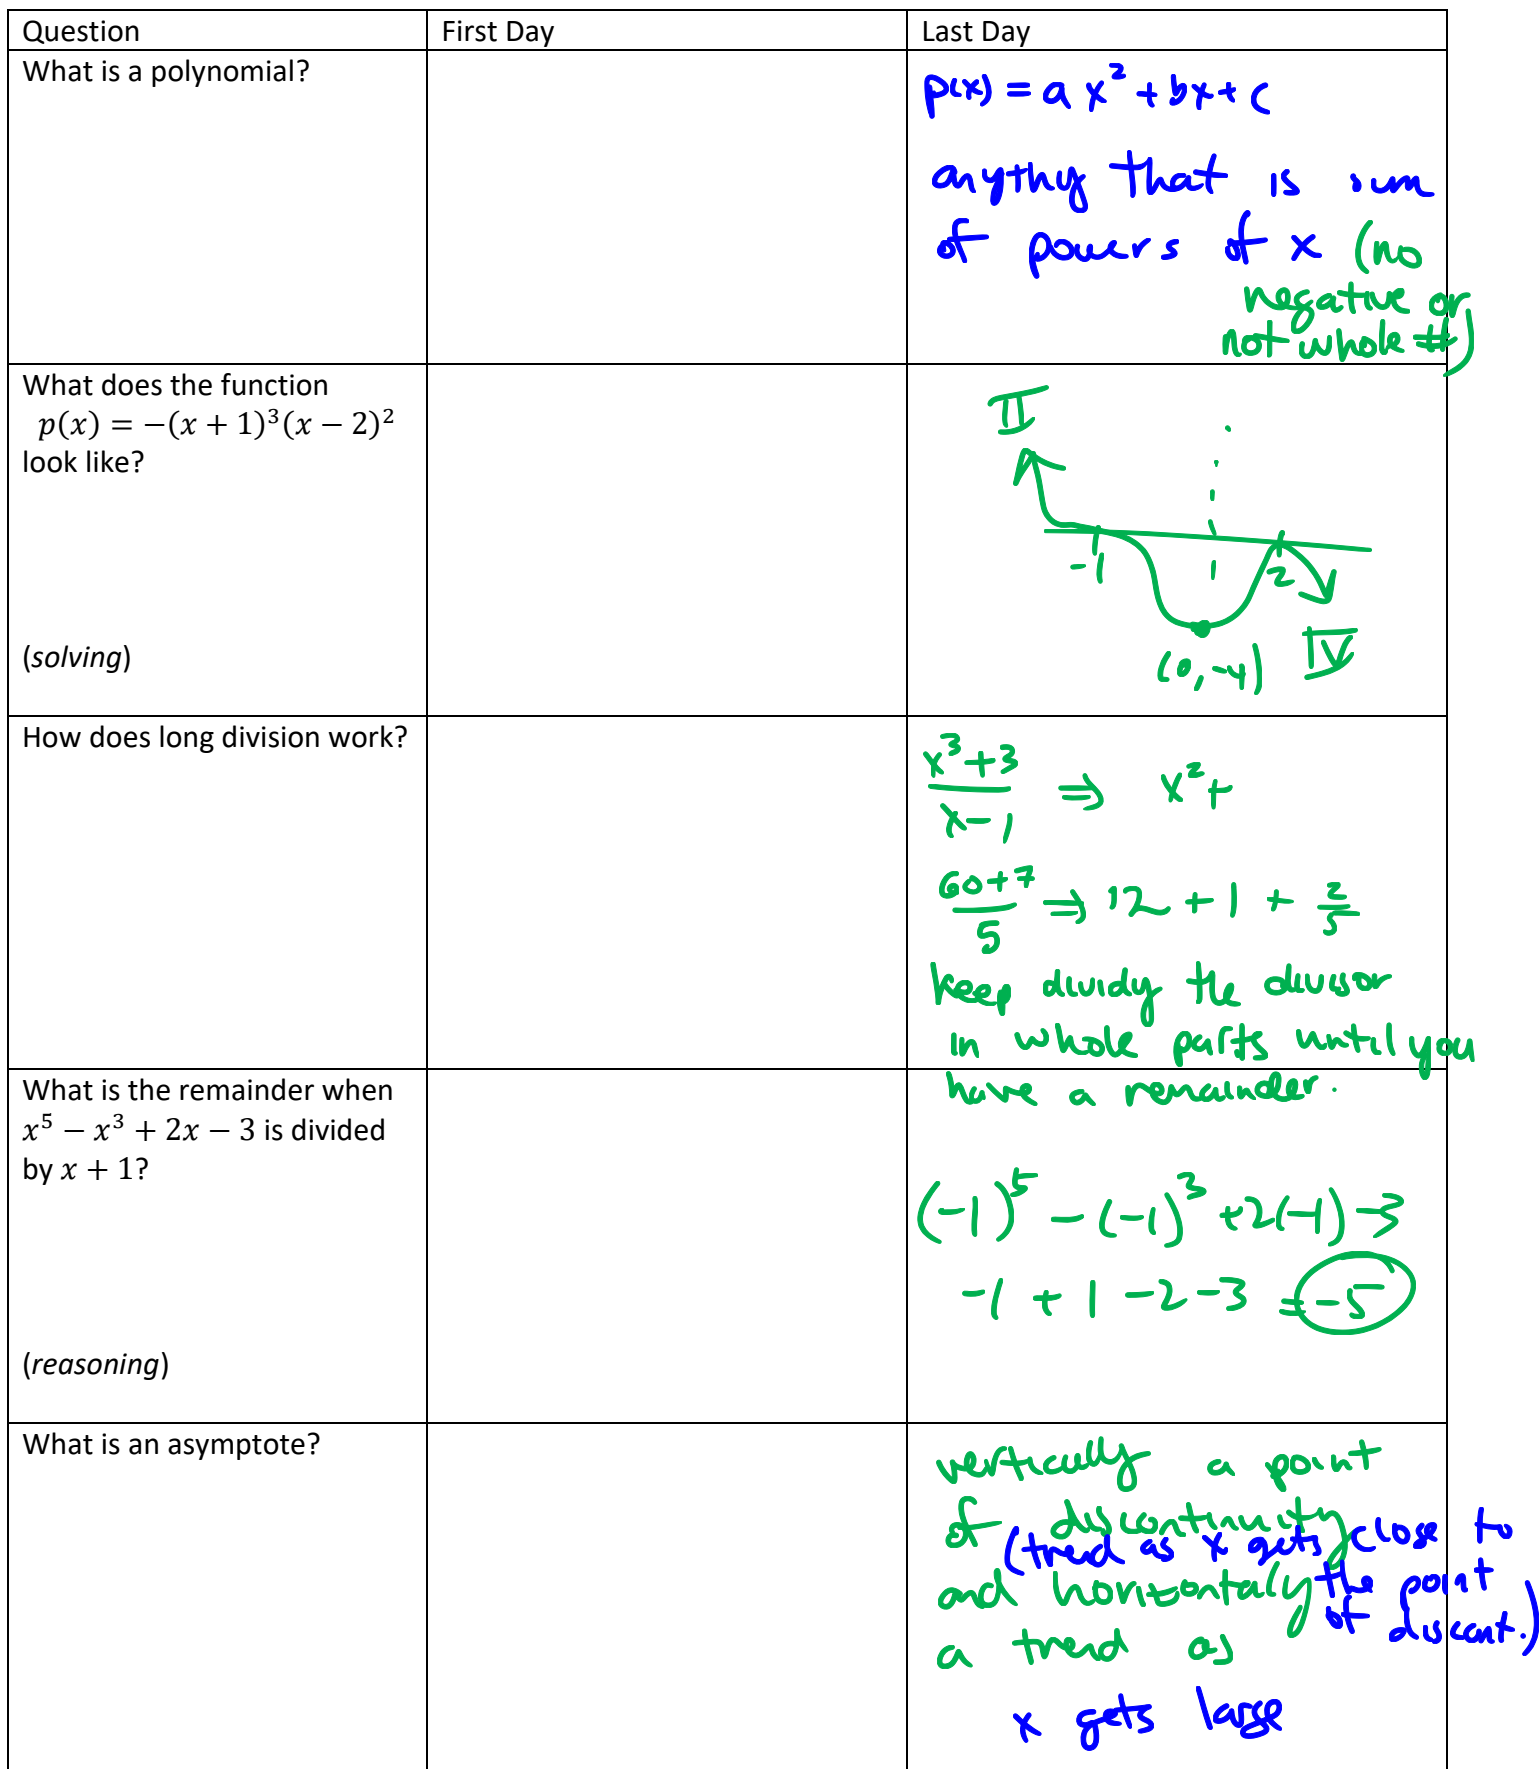 Question
First Day
Last Day
What is a polynomial?
p(x) = ax² + bx + c
anythg that is sum
of powers of x (no
negative or
not whole #)
What does the function
p(x) = −(x + 1)³(x − 2)²
look like?
(solving)
II
-1
1
2
(0, -4)
IV
How does long division work?
x³+3
x-1
⇒ x²+
60+7
5
⇒ 12 + 1 + 2/5
keep dividg the divisor
in whole parts until you
have a remainder.
What is the remainder when
x⁵ − x³ + 2x − 3 is divided
by x + 1?
(reasoning)
(-1)⁵ - (-1)³ +2(-1) -3
-1 + 1 -2 -3 = -5
What is an asymptote?
vertically a point
of discontinuity
(trend as x gets close to
the point
of discont.)
and horizontaly
a trend as
x gets large